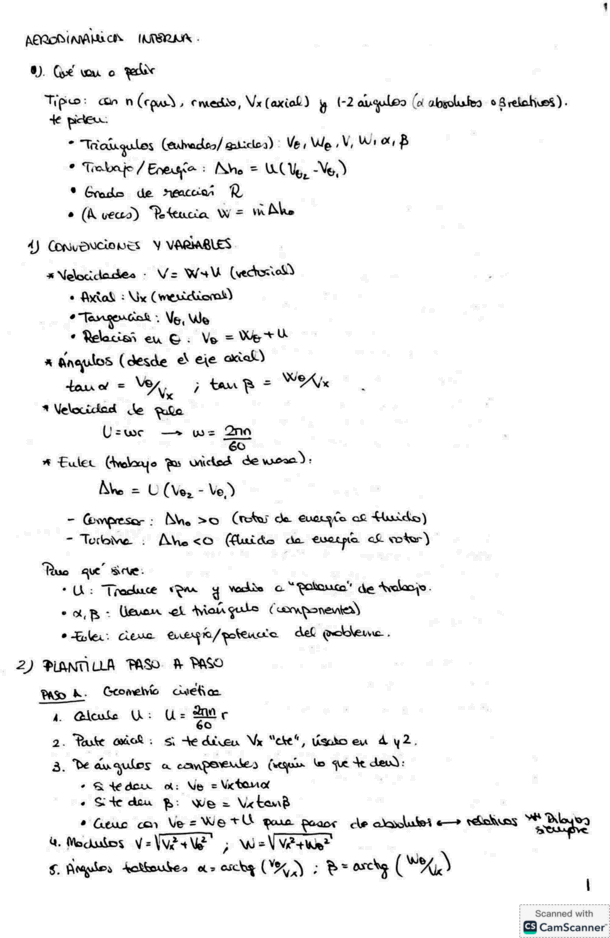 1
AERODINÁMICA INTERNA.
0). Qué van a pedir
Típico: con n (rpm), rmedio, Vx (axial) y 1-2 ángulos (α absolutos o β relativos).
te piden:
• Triángulos (entradas/salidas): Vθ, Wθ, V, W, α, β
• Trabajo/Energía: Δh₀ = U(Vθ₂ - Vθ₁)
• Grado de reacción R
• (A veces) Potencia Ẇ = ṁΔh₀
1) CONVENCIONES Y VARIABLES
* Velocidades: V = W+U (vectorial)
• Axial: Vx (meridional)
• Tangencial: Vθ, Wθ
• Relación en θ: Vθ = Wθ + U
* Ángulos (desde el eje axial)
tan α = Vθ/Vx ; tan β = Wθ/Vx
* Velocidad de pala
U = ωr → ω = 2πn/60
* Euler (trabajo por unidad de masa):
Δh₀ = U (Vθ₂ - Vθ₁)
- Compresor: Δh₀ > 0 (rotor da energía al fluido)
- Turbina: Δh₀ < 0 (fluido da energía al rotor)
Para qué sirve:
• U: Traduce rpm y radio a "palanca" de trabajo.
• α, β: llevan el triángulo (componentes)
• Euler: cierra energía/potencia del problema.
2) PLANTILLA PASO A PASO
PASO A. Geometría cinética
1. Calcula U: U = 2πn/60 r
2. Parte axial: si te dicen Vx "cte", úsalo en 1 y 2.
3. De ángulos a componentes (según lo que te den):
• Si te dan α: Vθ = Vx tan α
• Si te dan β: Wθ = Vx tan β
• Cierra con Vθ = Wθ + U para pasar de absolutos ↔ relativos ** Dibujos siempre
4. Módulos V = √Vx² + Vθ² ; W = √Vx² + Wθ²
5. Ángulos faltantes α = arctg (Vθ/Vx) ; β = arctg (Wθ/Vx)
1
Scanned with
CS CamScanner